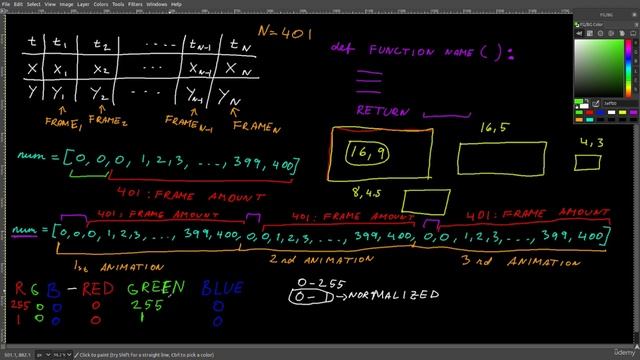 File Edit Select View Image Layer Colors Tools Filters Windows Help
N=401
t t₁ t₂ .... tN-1 tN
X X₁ X₂ ... XN-1 XN
Y Y₁ Y₂ ... YN-1 YN
FRAME₁ FRAME₂ FRAMEN-1 FRAMEN
def FUNCTION NAME ( ) :
RETURN
FG/BG
FG/BG Color
16,9
16,5
4,3
8,4.5
num = [0, 0, 0, 1, 2, 3, ..., 399, 400]
401 : FRAME AMOUNT
401: FRAME AMOUNT 401 : FRAME AMOUNT 401: FRAME AMOUNT
num = [0, 0, 0, 1, 2, 3, ..., 399, 400, 0, 0, 0, 1, 2, 3, ..., 399, 400, 0, 0, 0, 1, 2, 3, ..., 399, 400]
1st ANIMATION 2nd ANIMATION 3rd ANIMATION
R G B - RED GREEN BLUE
255 0 0 0 255 0
1 0 0 0 1 0
0-255
0- → NORMALIZED
Click to paint (try Shift for a straight line, Ctrl to pick a color)
Udemy